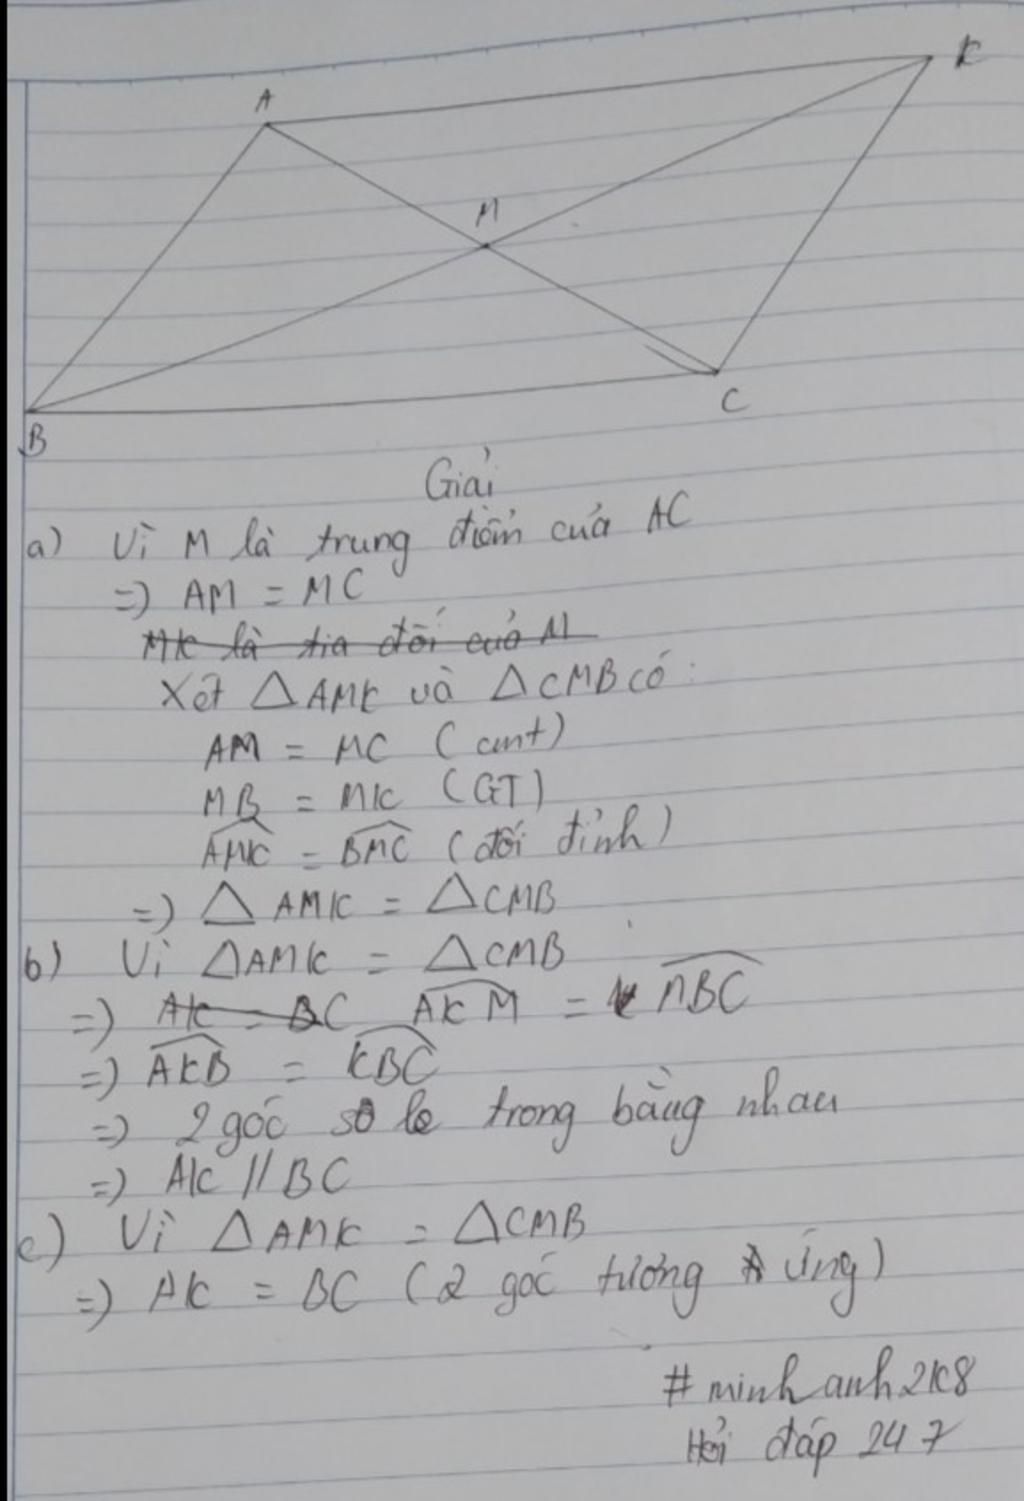 A
K
M
B
C
Giải
a) Vì M là trung điểm của AC
=) AM = MC
MK là tia đối của M
Xét △AMK và △CMB có :
AM = MC (cmt)
MB = MK (GT)
AMK = BMC (đối đỉnh)
=) △AMK = △CMB
b) Vì △AMK = △CMB
=) AK = BC AKM = MBC
=) AKB = KBC
=) 2 góc so le trong bằng nhau
=) AK // BC
c) Vì △AMK = △CMB
=) AK = BC (2 góc tương ứng)
# minh anh 2k8
Hỏi đáp 247